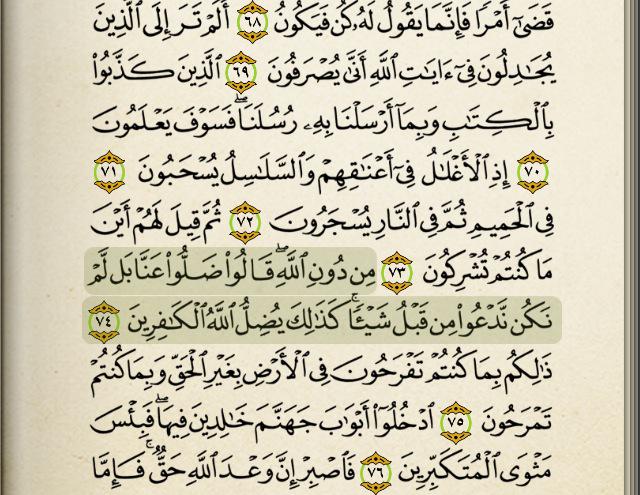 قَضَىٰٓ أَمْرًا فَإِنَّمَا يَقُولُ لَهُۥ كُن فَيَكُونُ ٦٨ أَلَمْ تَرَ إِلَى ٱلَّذِينَ
يُجَٰدِلُونَ فِىٓ ءَايَٰتِ ٱللَّهِ أَنَّىٰ يُصْرَفُونَ ٦٩ ٱلَّذِينَ كَذَّبُوا۟
بِٱلْكِتَٰبِ وَبِمَآ أَرْسَلْنَا بِهِۦ رُسُلَنَا ۖ فَسَوْفَ يَعْلَمُونَ
٧٠ إِذِ ٱلْأَغْلَٰلُ فِىٓ أَعْنَٰقِهِمْ وَٱلسَّلَٰسِلُ يُسْحَبُونَ ٧١
فِى ٱلْحَمِيمِ ثُمَّ فِى ٱلنَّارِ يُسْجَرُونَ ٧٢ ثُمَّ قِيلَ لَهُمْ أَيْنَ
مَا كُنتُمْ تُشْرِكُونَ ٧٣ مِن دُونِ ٱللَّهِ ۖ قَالُوا۟ ضَلُّوا۟ عَنَّا بَل لَّمْ
نَكُن نَّدْعُوا۟ مِن قَبْلُ شَيْـًٔا ۚ كَذَٰلِكَ يُضِلُّ ٱللَّهُ ٱلْكَٰفِرِينَ ٧٤
ذَٰلِكُم بِمَا كُنتُمْ تَفْرَحُونَ فِى ٱلْأَرْضِ بِغَيْرِ ٱلْحَقِّ وَبِمَا كُنتُمْ
تَمْرَحُونَ ٧٥ ٱدْخُلُوٓا۟ أَبْوَٰبَ جَهَنَّمَ خَٰلِدِينَ فِيهَا ۖ فَبِئْسَ
مَثْوَى ٱلْمُتَكَبِّرِينَ ٧٦ فَٱصْبِرْ إِنَّ وَعْدَ ٱللَّهِ حَقٌّ ۚ فَإِمَّا